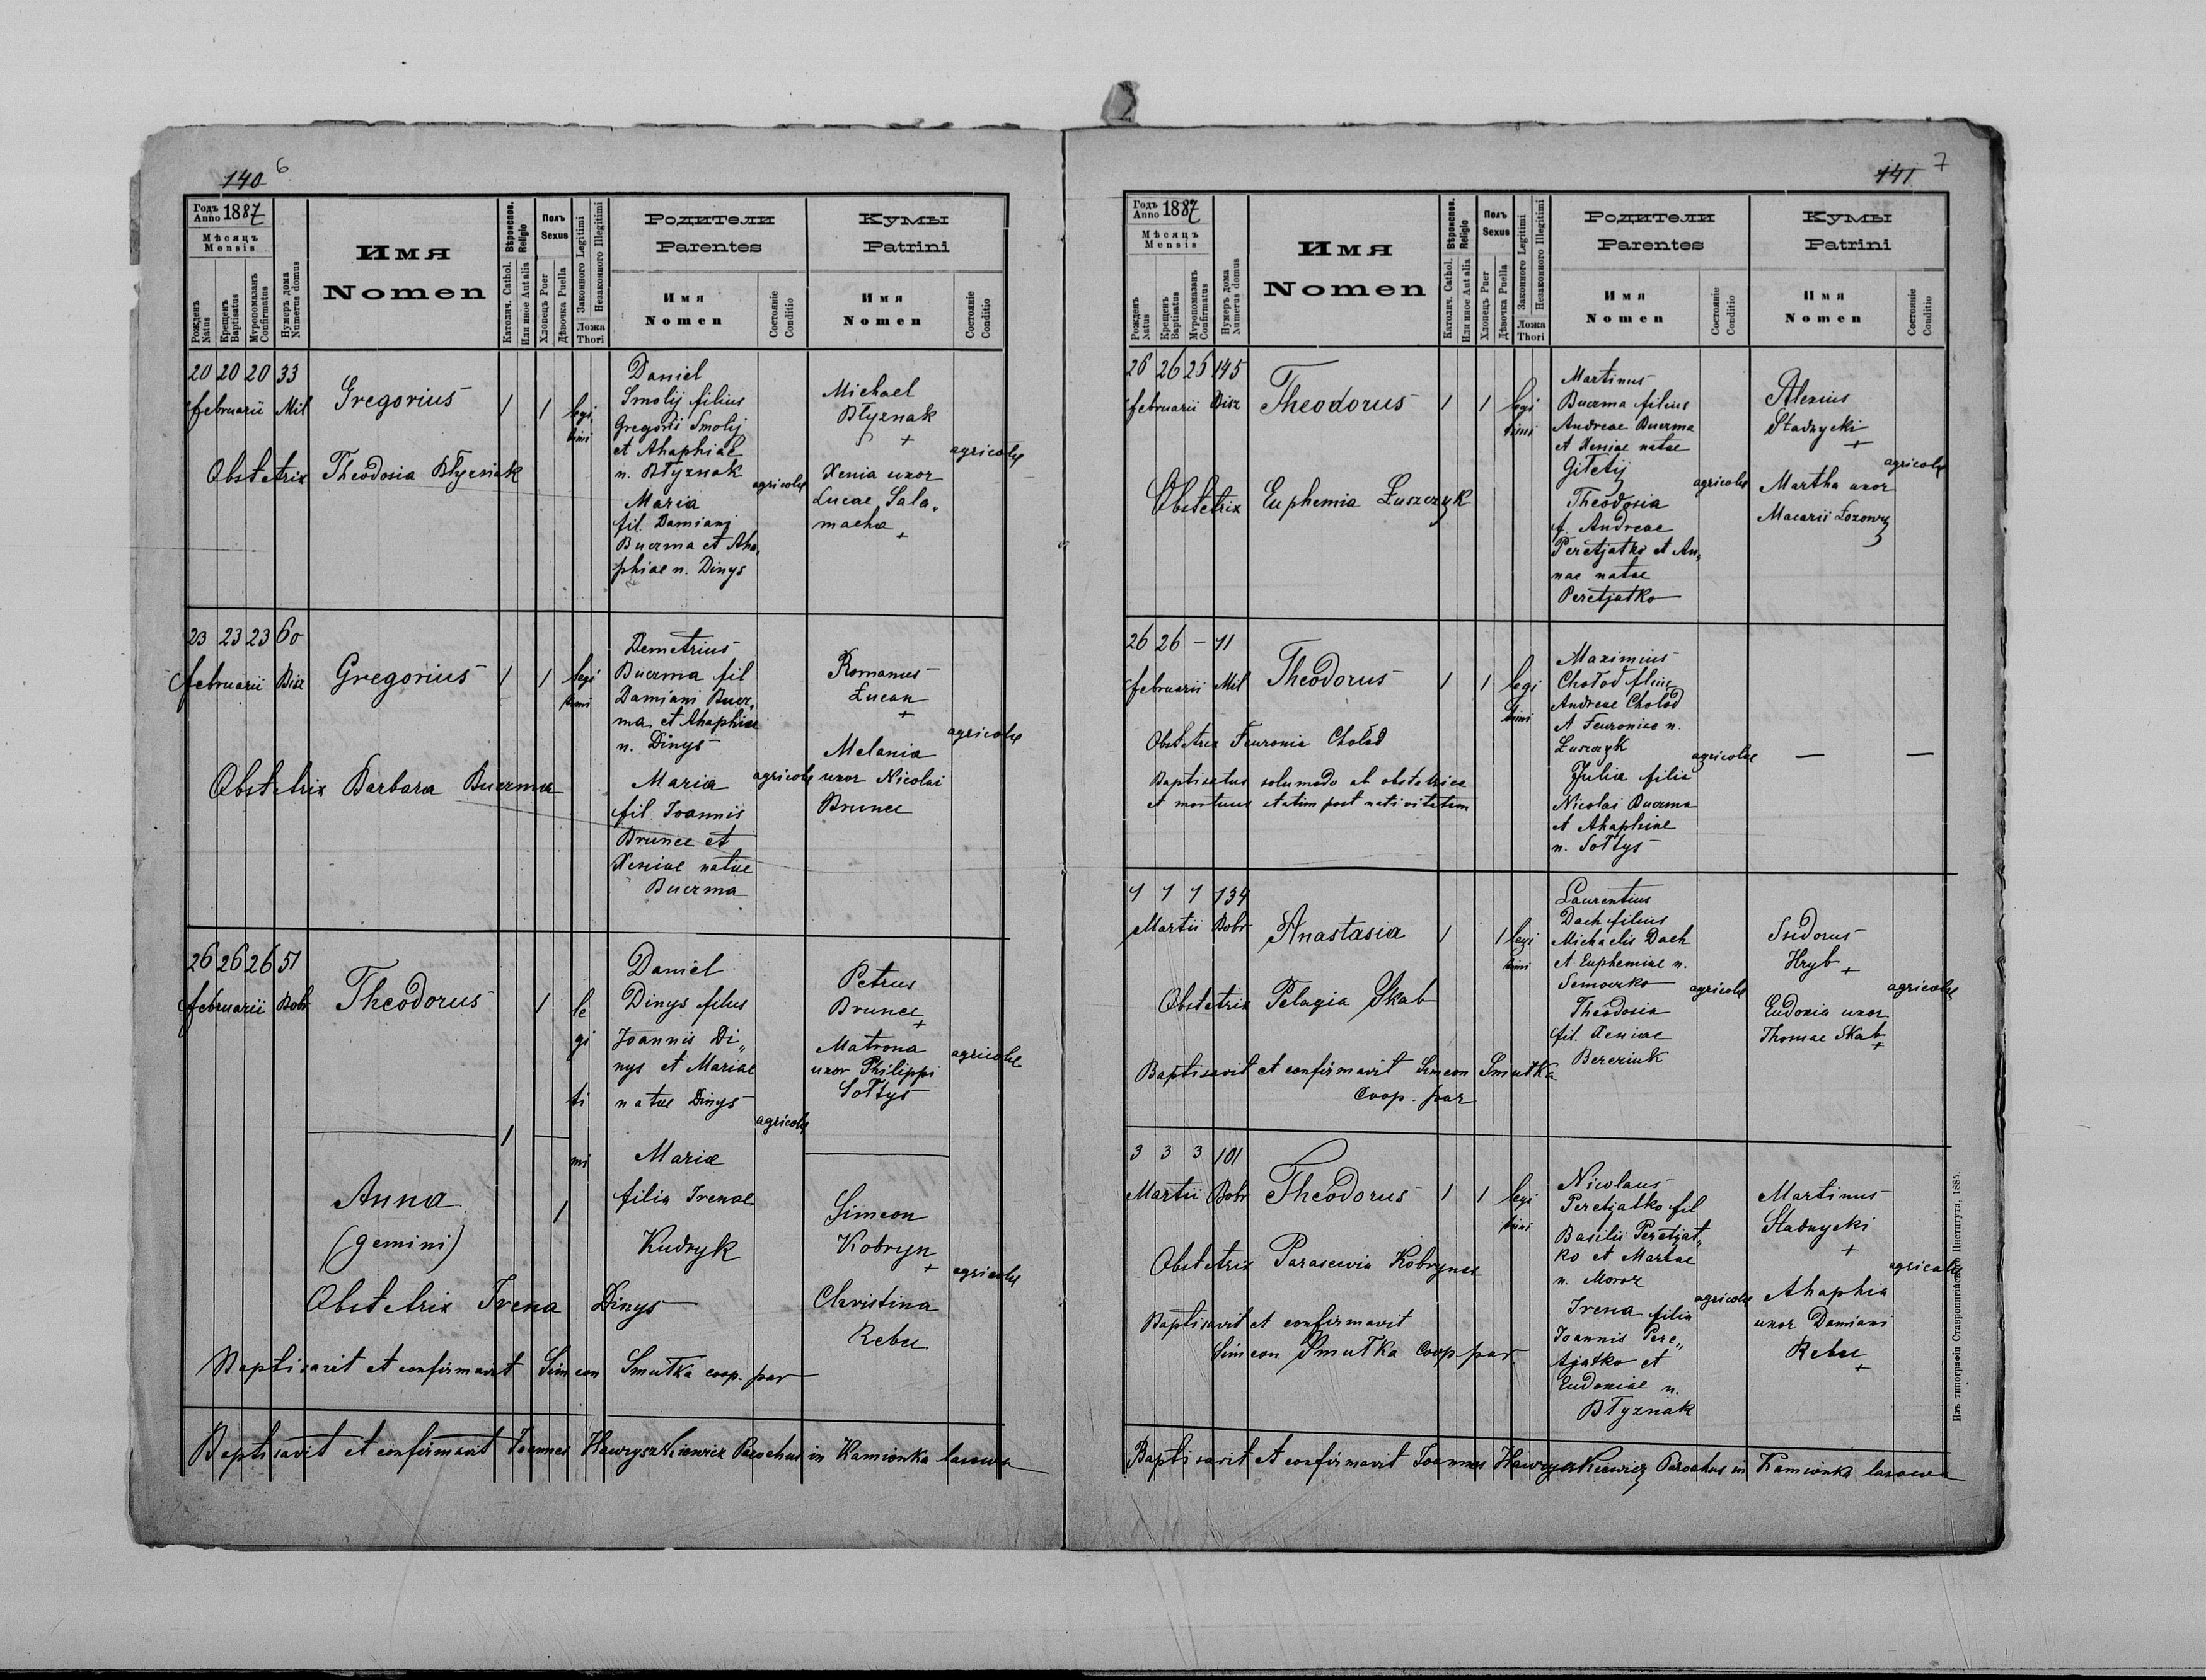 140 6
Годъ Anno 1887
Мѣсяцъ Mensis
Рожденъ Natus
Крещенъ Baptisatus
Мѵропомазанъ Confirmatus
Нумеръ дома Numerus domus
Имя Nomen
Вѣроиспов. Religio
Католич. Cathol.
Или иное Aut alia
Полъ Sexus
Хлопецъ Puer
Дѣвочка Puella
Законного Legitimi
Незаконного Illegitimi
Ложа Thori
Родители Parentes
Имя Nomen
Состояніе Conditio
Кумы Patrini
Имя Nomen
Состояніе Conditio
20 20 20 33
februarii Mil
Gregorius
1 1 legi
timi
Daniel
Smolij filius
Gregorii Smolij
et Ahaphiae
n. Błyznak
Maria
fil. Damiani
Buczma et Aha„
phiae n. Dinys
agricolæ
Michael
Błyznak
+
Xenia uxor
Lucae Sala„
macha +
agricolæ
Obstetrix Theodosia Błyznak
23 23 23 60
februarii Bisz
Gregorius
1 1 legi
timi
Demetrius
Buczma fil
Damiani Bucz„
ma et Ahaphiae
n. Dinys
Maria
fil. Joannis
Brunec et
Xeniae natae
Buczma
agricolæ
Romanus
Łucan
+
Melania
uxor Nicolai
Brunec
agricolæ
Obstetrix Barbara Buczma
26 26 26 51
februarii Bobr
Theodorus
1 le
gi
ti
mi
Daniel
Dinys filius
Joannis Di„
nys et Mariae
natae Dinys
Maria
filia Irenae
Kudryk
agricolæ
Petrus
Brunec
+
Matrona
uxor Philippi
Sołtys
agricolæ
1
Anna
(gemini)
1
Simeon
Kobryn
+
Christina
Rebec
agricolæ
Obstetrix Irena Dinys
Baptisavit et confirmavit Simeon Smutka coop. par
Baptisavit et confirmavit Joannes Hawryszkiewicz Parochus in Kamionka lasowa
141 7
Годъ Anno 1887
Мѣсяцъ Mensis
Рожденъ Natus
Крещенъ Baptisatus
Мѵропомазанъ Confirmatus
Нумеръ дома Numerus domus
Имя Nomen
Вѣроиспов. Religio
Католич. Cathol.
Или иное Aut alia
Полъ Sexus
Хлопецъ Puer
Дѣвочка Puella
Законного Legitimi
Незаконного Illegitimi
Ложа Thori
Родители Parentes
Имя Nomen
Состояніе Conditio
Кумы Patrini
Имя Nomen
Состояніе Conditio
26 26 26 145
februarii Bisz
Theodorus
1 1 legi
timi
Martinus
Buczma filius
Andreae Buczma
et Xeniae natae
Giłetij
Theodosia
f. Andreae
Peretjatko et An„
nae natae
Peretjatko
agricolæ
Alexius
Stadnycki
+
Martha uxor
Macarii Łozowy
agricolæ
Obstetrix Euphemia Łuszczyk
26 26 – 71
februarii Mil
Theodorus
1 1 legi
timi
Maximius
Chołod filius
Andreae Chołod
et Feuroniae n.
Łuszczyk
Julia filia
Nicolai Buczma
et Ahaphiae
n. Sołtys
agricolæ
– –
Obstetrix Feuronia Chołod
Baptisatus solumodo ab obstetrice
et mortuus statim post nativitatem
1 1 1 134
Martii Bobr
Anastasia
1 1 legi
timi
Laurentius
Dach filius
Michaelis Dach
et Euphemiae n.
Semoczko
Theodosia
fil. Xeniae
Bereziuk
agricolæ
Isidorus
Hryb +
Eudoxia uxor
Thomae Skab
+
agricolæ
Obstetrix Pelagia Skab
Baptisavit et confirmavit Simeon Smutka
Coop. par
3 3 3 101
Martii Bobr
Theodorus
1 1 legi
timi
Nicolaus
Peretjatko fil
Basilii Peretjat„
ko et Marthae
n. Moroz
Irena filia
Joannis Pere„
tjatko et
Eudoxiae n.
Błyznak
agricolæ
Martinus
Stadnycki
+
Ahaphia
uxor Damiani
Rebec
+
agricolæ
Obstetrix Parascevia Kobrynec
Baptisavit et confirmavit
Simeon Smutka Coop. par.
Baptisavit et confirmavit Joannes Hawryszkiewicz Parochus in Kamionka lasowa
Изъ типографіи Ставропигійского Института, 1885.